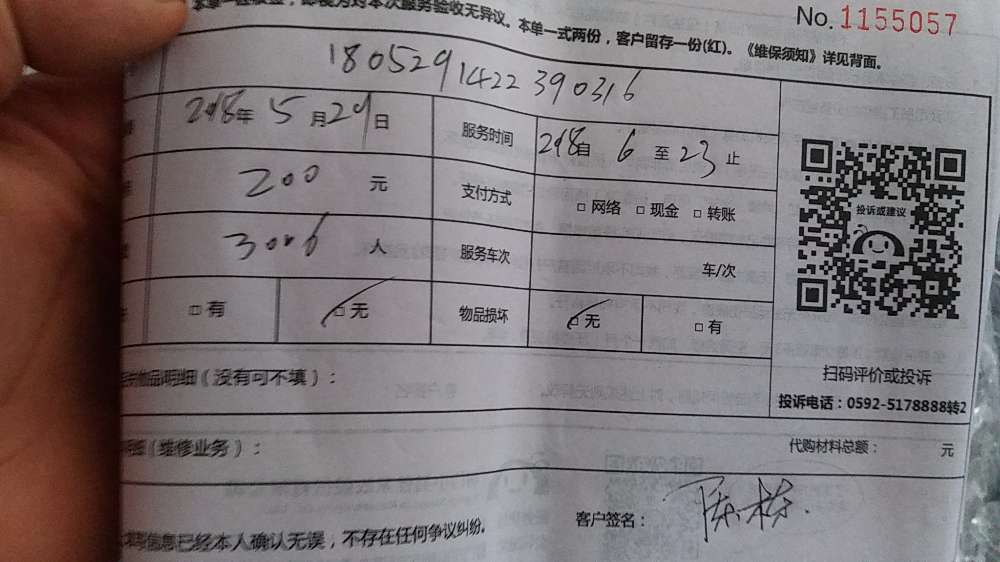 No. 1155057
本单一式两份，客户留存一份(红)。《维保须知》详见背面。
180529142239 0316
年 5 月 29 日
服务时间
自 6 至 23 止
200 元
支付方式
□ 网络 □ 现金 □ 转账
3006 人
服务车次
车/次
□ 有
□ 无
物品损坏
□ 无
□ 有
投诉或建议
扫码评价或投诉
投诉电话：0592-5178888转2
物品明细（没有可不填）：
（维修业务）：
代购材料总额： 元
客户签名：
信息已经本人确认无误，不存在任何争议纠纷。